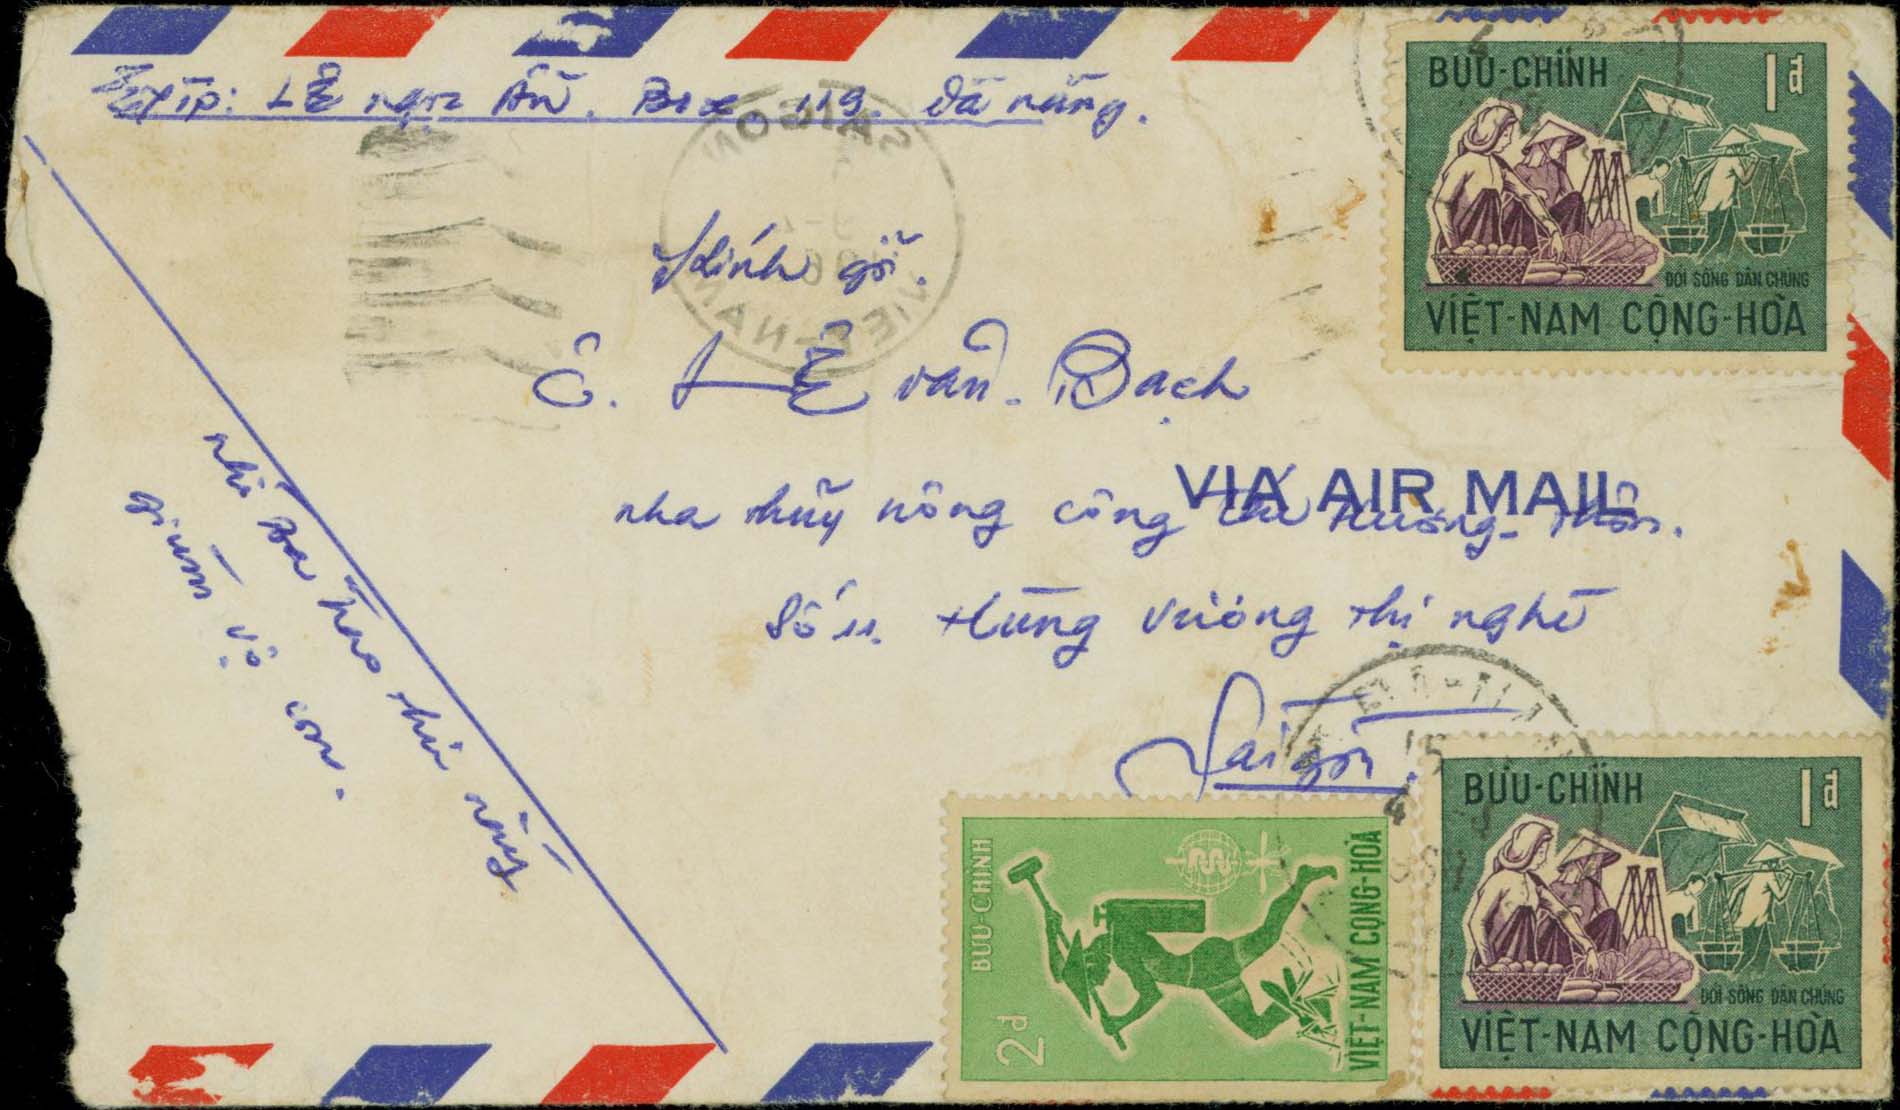 Lê ngọc Ân. Box 119. Đà nẵng.
SAIGON
VIET-NAM
Kính gởi.
Ô. LÊ văn Bạch
nha thủy nông công tác Hương-thôn.
Số 11. Hùng Vương thị nghè
Sài gòn.
VIA AIR MAIL
nhờ Ba trao thư nầy
giùm vợ con.
BƯU-CHÍNH
1đ
ĐỜI SỐNG DÂN CHÚNG
VIỆT-NAM CỘNG-HÒA
BƯU-CHÍNH
2đ
VIỆT-NAM CỘNG-HÒA
BƯU-CHÍNH
1đ
ĐỜI SỐNG DÂN CHÚNG
VIỆT-NAM CỘNG-HÒA